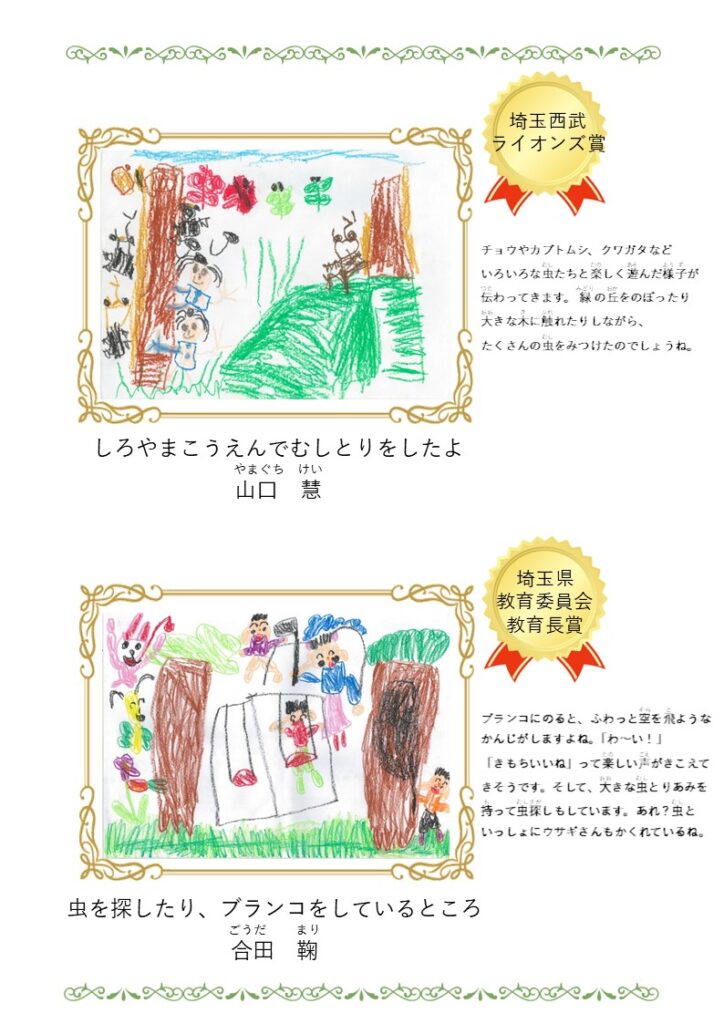 埼玉西武
ライオンズ賞
チョウやカブトムシ、クワガタなど
いろいろな虫たちと楽しく遊んだ様子が
伝わってきます。緑の丘をのぼったり
大きな木に触れたりしながら、
たくさんの虫をみつけたのでしょうね。
しろやまこうえんでむしとりをしたよ
やまぐち けい
山口 慧
埼玉県
教育委員会
教育長賞
ブランコにのると、ふわっと空を飛ような
かんじがしますよね。「わ〜い！」
「きもちいいね」って楽しい声がきこえて
きそうです。そして、大きな虫とりあみを
持って虫探しもしています。あれ？虫と
いっしょにウサギさんもかくれているね。
虫を探したり、ブランコをしているところ
ごうだ まり
合田 鞠